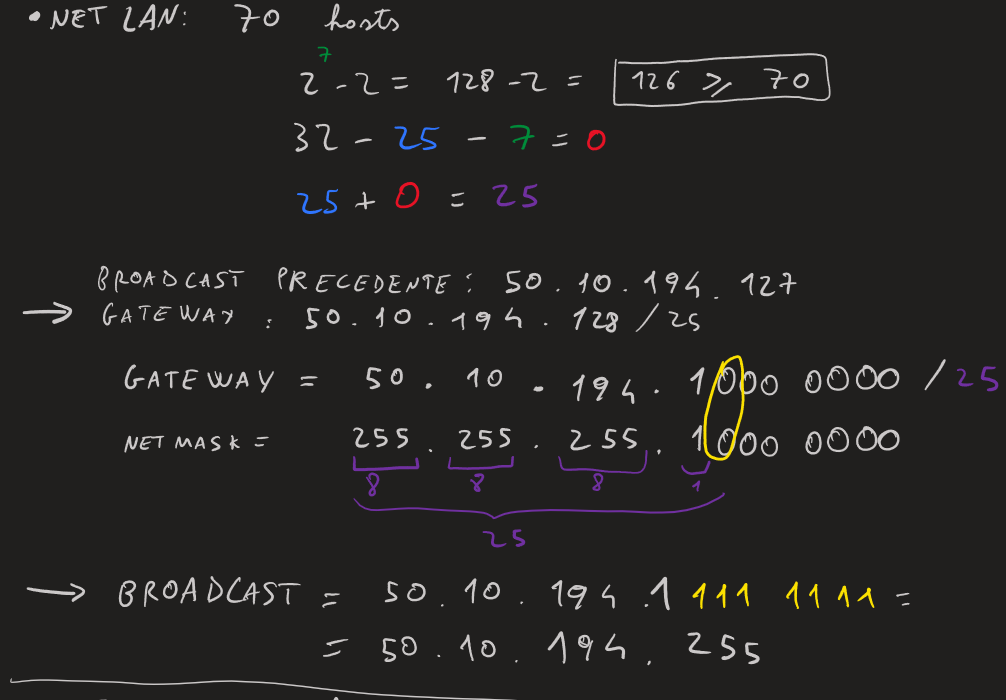 • NET LAN: 70 hosts
2^7 - 2 = 128 - 2 = 126 ⩾ 70
32 - 25 - 7 = 0
25 + 0 = 25
BROADCAST PRECEDENTE: 50.10.194.127
→ GATEWAY : 50.10.194.128/25
GATEWAY = 50.10.194.1000 0000/25
NET MASK = 255.255.255.1000 0000
8 8 8 1
25
→ BROADCAST = 50.10.194.1 111 1111 =
= 50.10.194.255